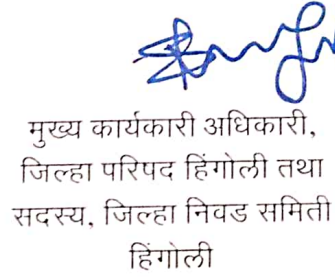 मुख्य कार्यकारी अधिकारी,
जिल्हा परिषद हिंगोली तथा
सदस्य, जिल्हा निवड समिती
हिंगोली